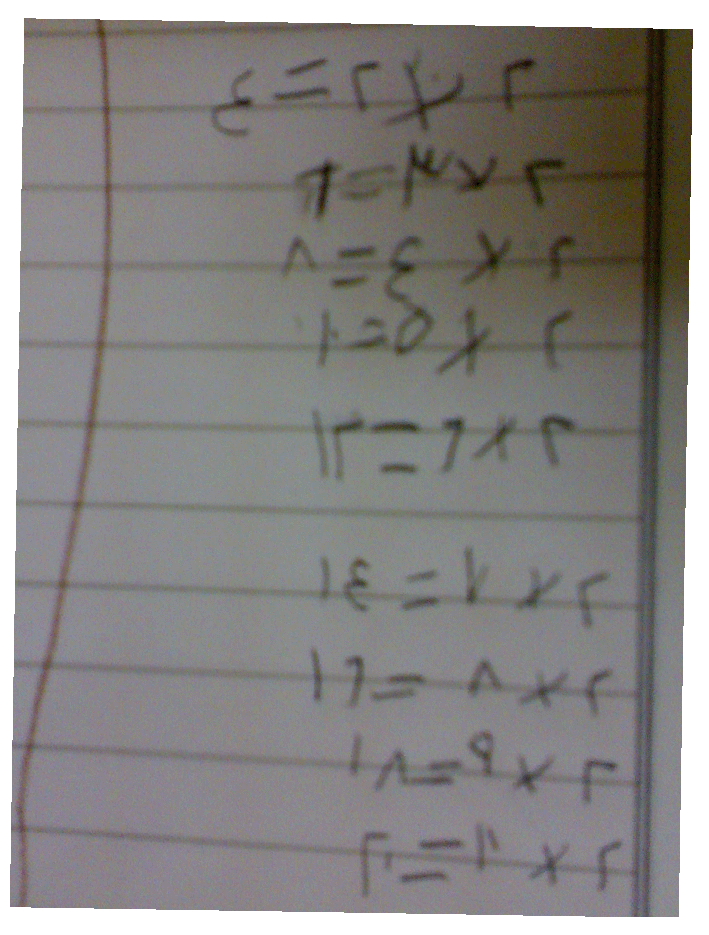 ٢ × ٢ = ٤
٢ × ٣ = ٦
٢ × ٤ = ٨
٢ × ٥ = ١٠
٢ × ٦ = ١٢
٢ × ٧ = ١٤
٢ × ٨ = ١٦
٢ × ٩ = ١٨
٢ × ١٠ = ٢٠